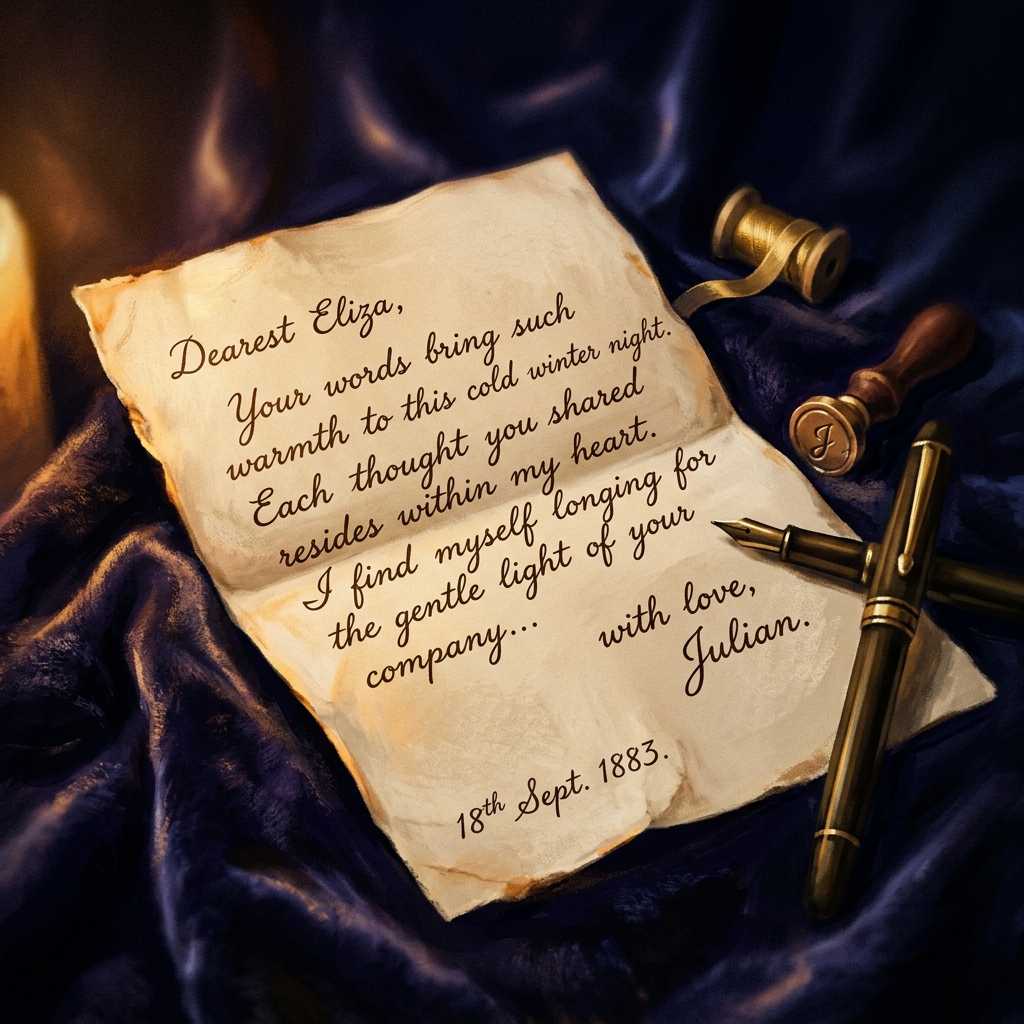 Dearest Eliza,
Your words bring such
warmth to this cold winter night.
Each thought you shared
resides within my heart.
I find myself longing for
the gentle light of your
company...
with love,
Julian.
18th Sept. 1883.
J